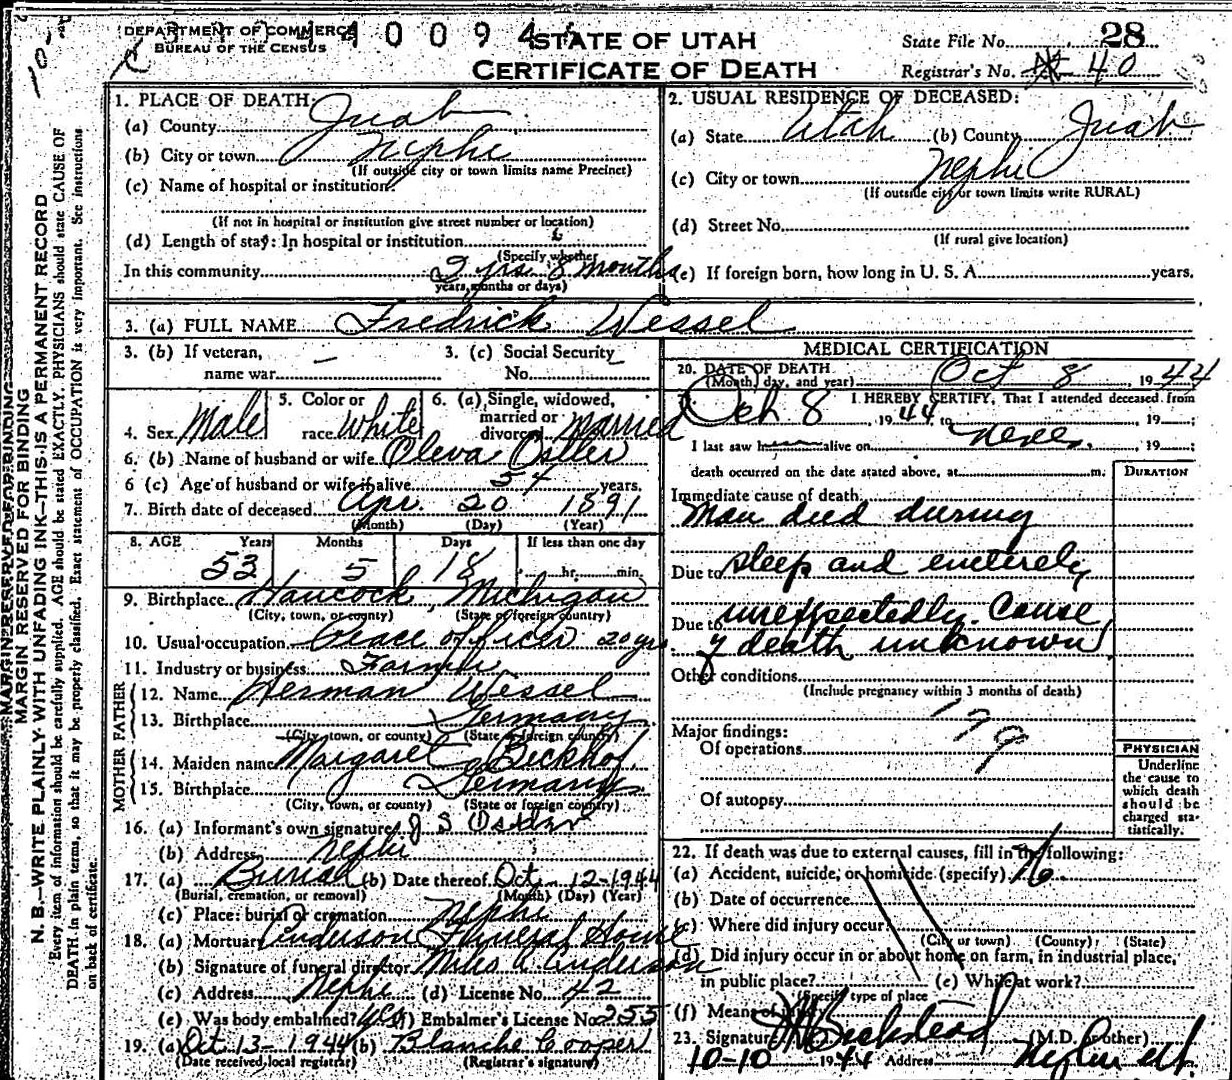 DEPARTMENT OF COMMERCE
BUREAU OF THE CENSUS
STATE OF UTAH
CERTIFICATE OF DEATH
State File No. 28
Registrar's No. 40
MARGIN RESERVED FOR BINDING
MARGIN RESERVED FOR BINDING
N. B.—WRITE PLAINLY WITH UNFADING INK—THIS IS A PERMANENT RECORD
Every item of information should be carefully supplied. AGE should be stated EXACTLY. PHYSICIANS should state CAUSE OF
DEATH in plain terms, so that it may be properly classified. Exact statement of OCCUPATION is very important. See instructions
on back of certificate.
1. PLACE OF DEATH:
(a) County Juab
(b) City or town Nephi
(If outside city or town limits name Precinct)
(c) Name of hospital or institution
(If not in hospital or institution give street number or location)
(d) Length of stay: In hospital or institution
(Specify whether
In this community 2 yrs. 8 months
years, months or days)
2. USUAL RESIDENCE OF DECEASED:
(a) State Utah (b) County Juab
(c) City or town Nephi
(If outside city or town limits write RURAL)
(d) Street No.
(If rural give location)
(e) If foreign born, how long in U. S. A. years.
3. (a) FULL NAME Fredrick Wessel
3. (b) If veteran, name war — 3. (c) Social Security No.
4. Sex Male 5. Color or race White 6. (a) Single, widowed, married or divorced married
6. (b) Name of husband or wife Oleva Ostler
6 (c) Age of husband or wife if alive 54 years.
7. Birth date of deceased Apr. 20 1891
(Month) (Day) (Year)
8. AGE Years Months Days If less than one day
53 5 18 hr. min.
9. Birthplace Hancock, Michigan
(City, town, or county) (State or foreign country)
10. Usual occupation Peace officer 20 yrs.
11. Industry or business Farmer
FATHER
12. Name Herman Wessel
13. Birthplace Germany
(City, town, or county) (State or foreign country)
MOTHER
14. Maiden name Margaret Beckhof
15. Birthplace Germany
(City, town, or county) (State or foreign country)
16. (a) Informant's own signature J S Ostler
(b) Address Nephi
17. (a) Burial (b) Date thereof Oct. 12-1944
(Burial, cremation, or removal) (Month) (Day) (Year)
(c) Place: burial or cremation Nephi
18. (a) Mortuary Anderson Funeral Home
(b) Signature of funeral director Miles A. Anderson
(c) Address Nephi (d) License No. 42
(e) Was body embalmed? yes (f) Embalmer's License No. 255
19. (a) Oct 13-1944 (b) Blanche Cooper
(Date received local registrar) (Registrar's signature)
MEDICAL CERTIFICATION
20. DATE OF DEATH
(Month, day, and year) Oct 8, 1944
I HEREBY CERTIFY, That I attended deceased from
Oct 8, 1944 to , 19 ;
I last saw h alive on never, 19 ;
death occurred on the date stated above, at m.
DURATION
Immediate cause of death
Man died during
Due to sleep and entirely
Due to unexpectedly. Cause
of death unknown.
Other conditions
(Include pregnancy within 3 months of death)
Major findings:
Of operations
Of autopsy
PHYSICIAN
Underline
the cause to
which death
should be
charged sta-
tistically.
22. If death was due to external causes, fill in the following:
(a) Accident, suicide, or homicide (specify) No.
(b) Date of occurrence
(c) Where did injury occur?
(City or town) (County) (State)
(d) Did injury occur in or about home on farm, in industrial place,
in public place? (e) While at work?
(Specify type of place
(f) Means of injury
23. Signature Beckstead (M.D. Other)
10-10 1944 Address Nephi Ut.